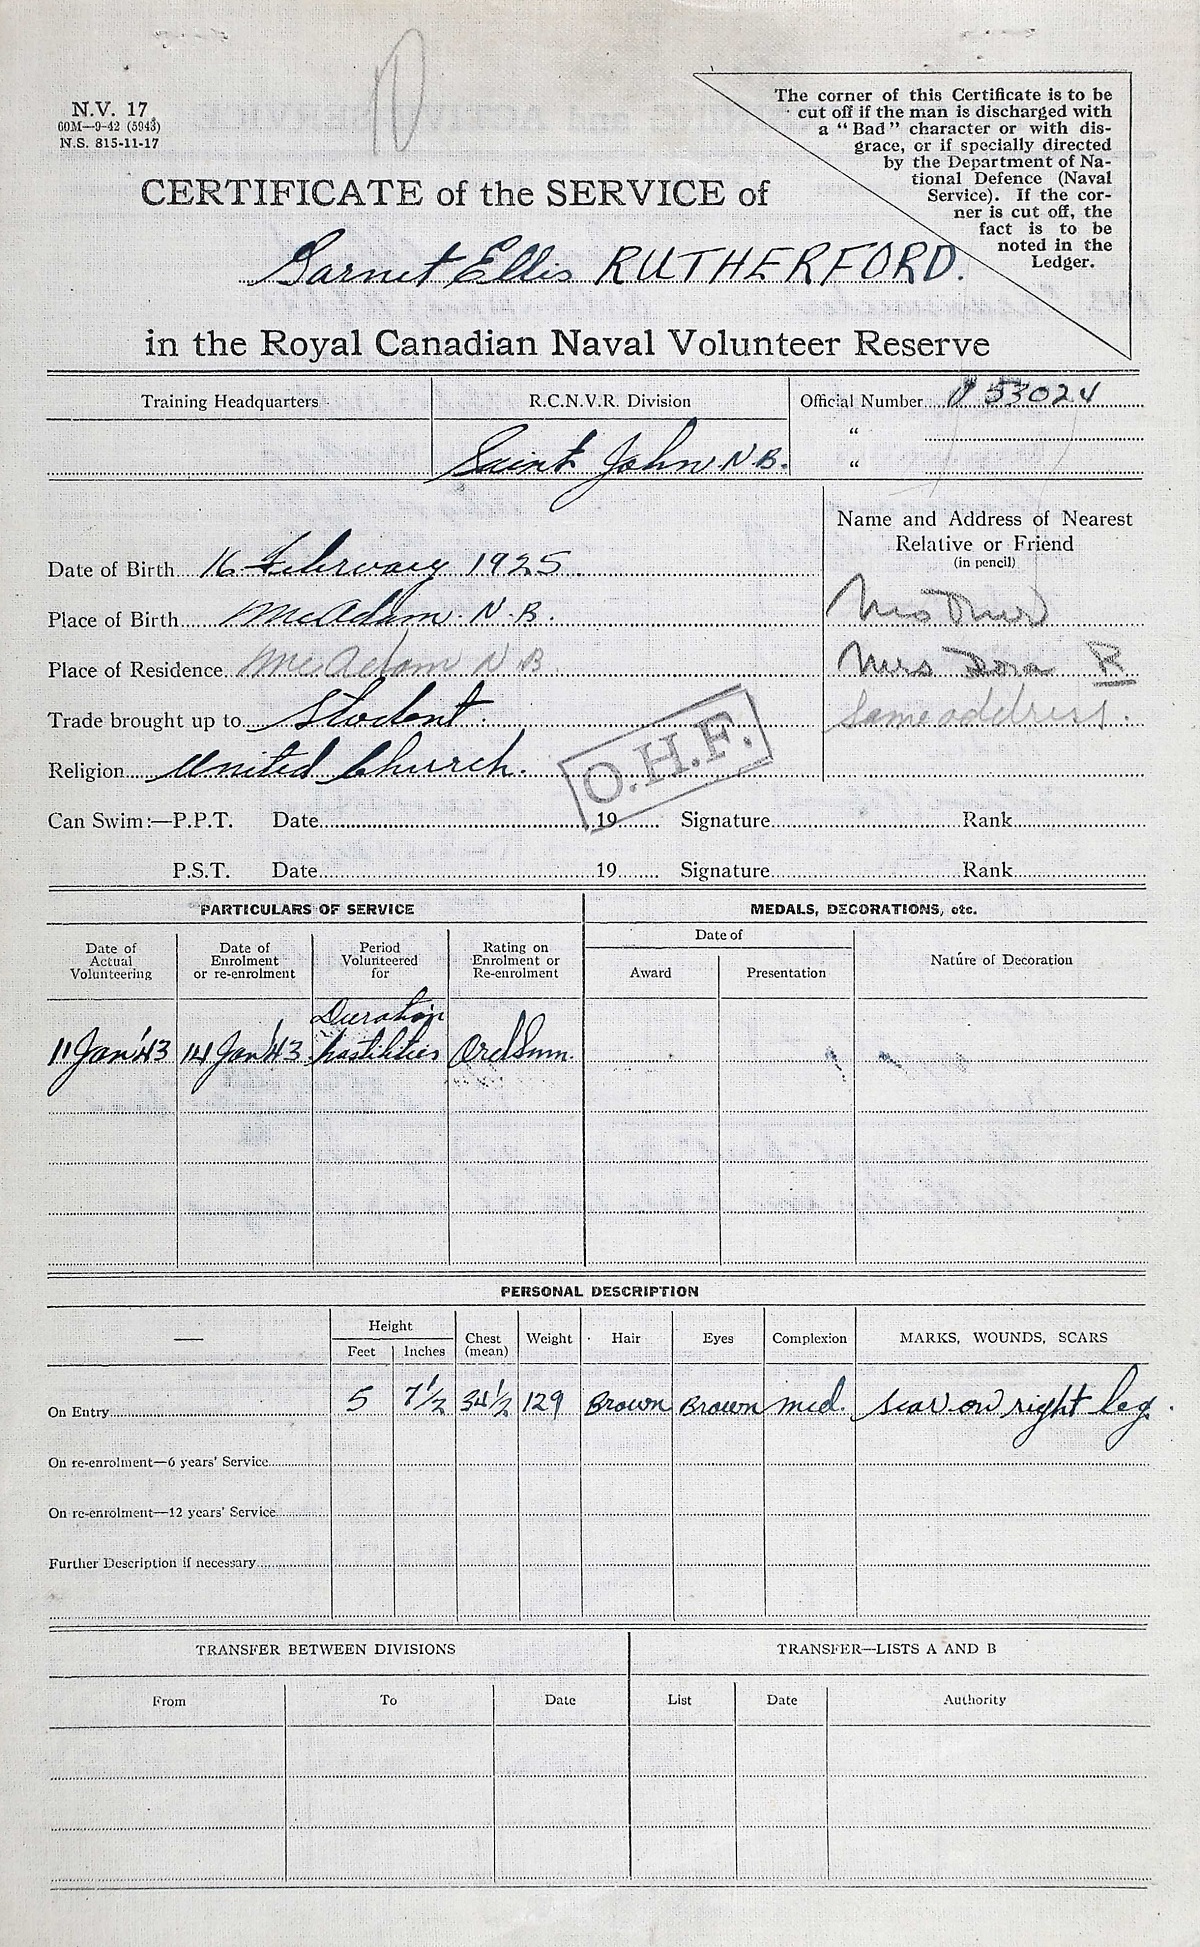 N.V. 17
60M—9-42 (5943)
N.S. 815-11-17
The corner of this Certificate is to be
cut off if the man is discharged with
a "Bad" character or with dis-
grace, or if specially directed
by the Department of Na-
tional Defence (Naval
Service). If the cor-
ner is cut off, the
fact is to be
noted in the
Ledger.
CERTIFICATE of the SERVICE of
Garnet Ellis RUTHERFORD.
in the Royal Canadian Naval Volunteer Reserve
Training Headquarters
R.C.N.V.R. Division
Official Number V 53024
"
Saint John. N.B.
"
Name and Address of Nearest
Relative or Friend
(in pencil)
Date of Birth 16 February 1925
Place of Birth McAdam. N.B.
Mother
Place of Residence McAdam N.B.
Mrs Dora R
Trade brought up to Student.
Same address.
Religion United Church.
O.H.F.
Can Swim:—P.P.T. Date 19 Signature Rank
P.S.T. Date 19 Signature Rank
PARTICULARS OF SERVICE
MEDALS, DECORATIONS, etc.
Date of Actual Volunteering
Date of Enrolment or re-enrolment
Period Volunteered for
Rating on Enrolment or Re-enrolment
Date of
Award
Presentation
Nature of Decoration
11 Jan '43 14 Jan '43 Duration hostilities Ord Smn.
PERSONAL DESCRIPTION
—
Height
Feet
Inches
Chest (mean)
Weight
Hair
Eyes
Complexion
MARKS, WOUNDS, SCARS
On Entry 5 7 1/2 34 1/2 129 Brown Brown med. scar on right leg.
On re-enrolment—6 years' Service
On re-enrolment—12 years' Service
Further Description if necessary
TRANSFER BETWEEN DIVISIONS
TRANSFER—LISTS A AND B
From To Date List Date Authority